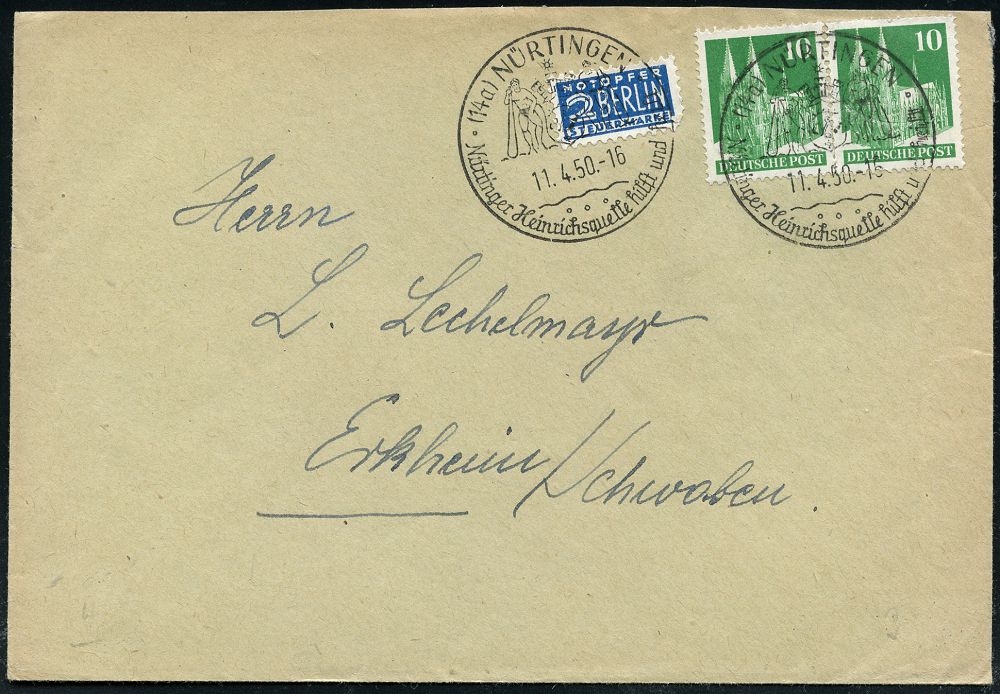 (14a) NÜRTINGEN
11.4.50.-16
Nürtinger Heinrichsquelle hilft und
NOTOPFER
2 BERLIN
STEUERMARKE
10
DEUTSCHE POST
10
DEUTSCHE POST
(14a) NÜRTINGEN
11.4.50.-16
Nürtinger Heinrichsquelle hilft u
Herrn
L. Lechelmayr
Erkheim/Schwaben.